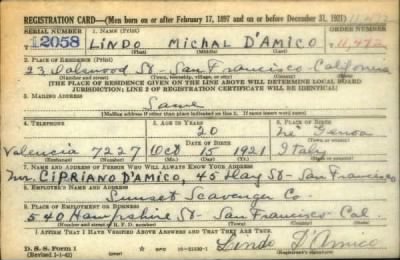 REGISTRATION CARD—(Men born on or after February 17, 1897 and on or before December 31, 1921)
SERIAL NUMBER 1. NAME (Print) ORDER NUMBER
12058 LINDO MICHAL D'AMICO 11,472
(First) (Middle) (Last)
2. PLACE OF RESIDENCE (Print)
23 St- San Francisco- California
(Number and street) (Town, township, village, or city) (County) (State)
[THE PLACE OF RESIDENCE GIVEN ON THE LINE ABOVE WILL DETERMINE LOCAL BOARD
JURISDICTION; LINE 2 OF REGISTRATION CERTIFICATE WILL BE IDENTICAL]
3. MAILING ADDRESS
Same
[Mailing address if other than place indicated on line 2. If same insert word same]
4. TELEPHONE 5. AGE IN YEARS 6. PLACE OF BIRTH
20 Genoa
DATE OF BIRTH
Valencia 7227 Oct 15 1921 Italy
(Exchange) (Number) (Mo.) (Day) (Yr.) (State or country)
7. NAME AND ADDRESS OF PERSON WHO WILL ALWAYS KNOW YOUR ADDRESS
CIPRIANO D'AMICO, 45 St- San Francisco
8. EMPLOYER'S NAME AND ADDRESS
Sunset Scavenger Co.
9. PLACE OF EMPLOYMENT OR BUSINESS
540 Hampshire St- San Francisco Cal.
(Number and street or R. F. D. number) (Town) (County) (State)
I AFFIRM THAT I HAVE VERIFIED ABOVE ANSWERS AND THAT THEY ARE TRUE.
D. S. S. Form 1
(Revised 1-1-42) Lindo D'Amico
(Registrant's signature)